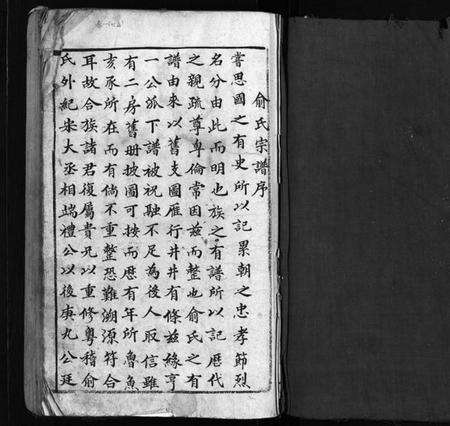 俞氏宗譜序
嘗思國之有史所以記累朝之忠孝節烈
名分由此而明也族之有譜所以記歷代
之親疏尊卑倫常因茲而整也俞氏之有
譜由來以舊支圖雁行井井有條茲緣亨
一公派下譜被祝融不足為後人取信雖
有二房舊册披圖可挾而歷有年所魯魚
亥豕所在而有倘不重整恐難溯源符合
耳故合族諸君復屬貴兄以重修粵稽俞
氏外紀宋大丞相端禮公以後庚九公廷